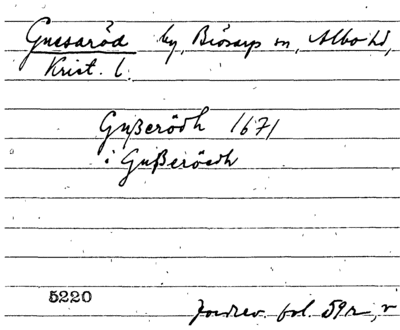 Gussaröd by, Brösarps sn, Albo hd,
Krist. l.
Gußerödh 1671
i Gußeröedh
5220 Jordrev. fol. 59 r, v